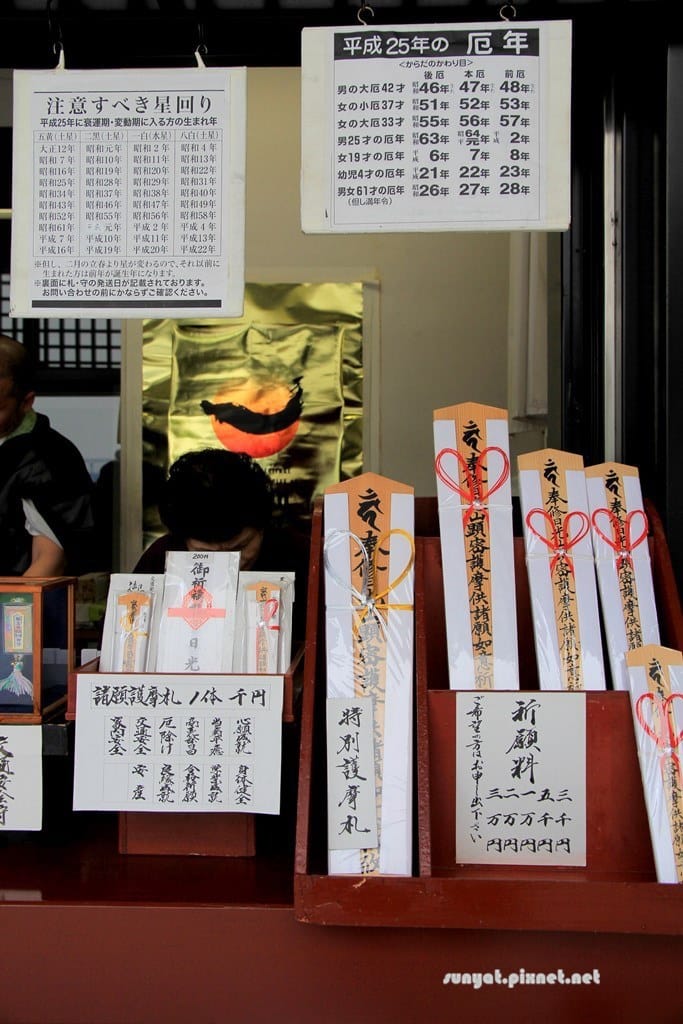 注意すべき星回り
平成25年に衰運期・変動期に入る方の生まれ年
五黄(土星) 二黒(土星) 一白(水星) 八白(土星)
大正12年 昭和元年 昭和2年 昭和4年
昭和7年 昭和10年 昭和11年 昭和13年
昭和16年 昭和19年 昭和20年 昭和22年
昭和25年 昭和28年 昭和29年 昭和31年
昭和34年 昭和37年 昭和38年 昭和40年
昭和43年 昭和46年 昭和47年 昭和49年
昭和52年 昭和55年 昭和56年 昭和58年
昭和61年 元年 平成2年 平成4年
平成7年 平成10年 平成11年 平成13年
平成16年 平成19年 平成20年 平成22年
※但し、二月の立春より星が変わるので、それ以前に
生まれた方は前年が誕生年になります。
※裏面に札・守の発送日が記載されております。
お問い合わせの前にかならずご確認ください。
平成25年の 厄年
<からだのかわり目>
後厄 本厄 前厄
男の大厄42才 昭和46年 47年 48年
女の小厄37才 昭和51年 52年 53年
女の大厄33才 昭和55年 56年 57年
男25才の厄年 昭和63年 昭和64平成元年 平成2年
女19才の厄年 平成6年 7年 8年
幼児4才の厄年 平成21年 22年 23年
男女61才の厄年 昭和26年 27年 28年
(但し満年令)
御祈
日光
諸願護摩札 一体 千円
心願成就
身体健全
当病平癒
学業成就
商売繁昌
合格祈願
厄除け
良縁成就
交通安全
安産
家内安全
奉修
特別護摩札
奉修日光山顕密護摩供諸願如意祈
奉修日光山 護摩供諸願如意
奉修日光山 密護摩供諸願
祈願料
三千円
五千円
一万円
二万円
三万円
ご希望の方はお申し出下さい
交通安全守
sunyat.pixnet.net